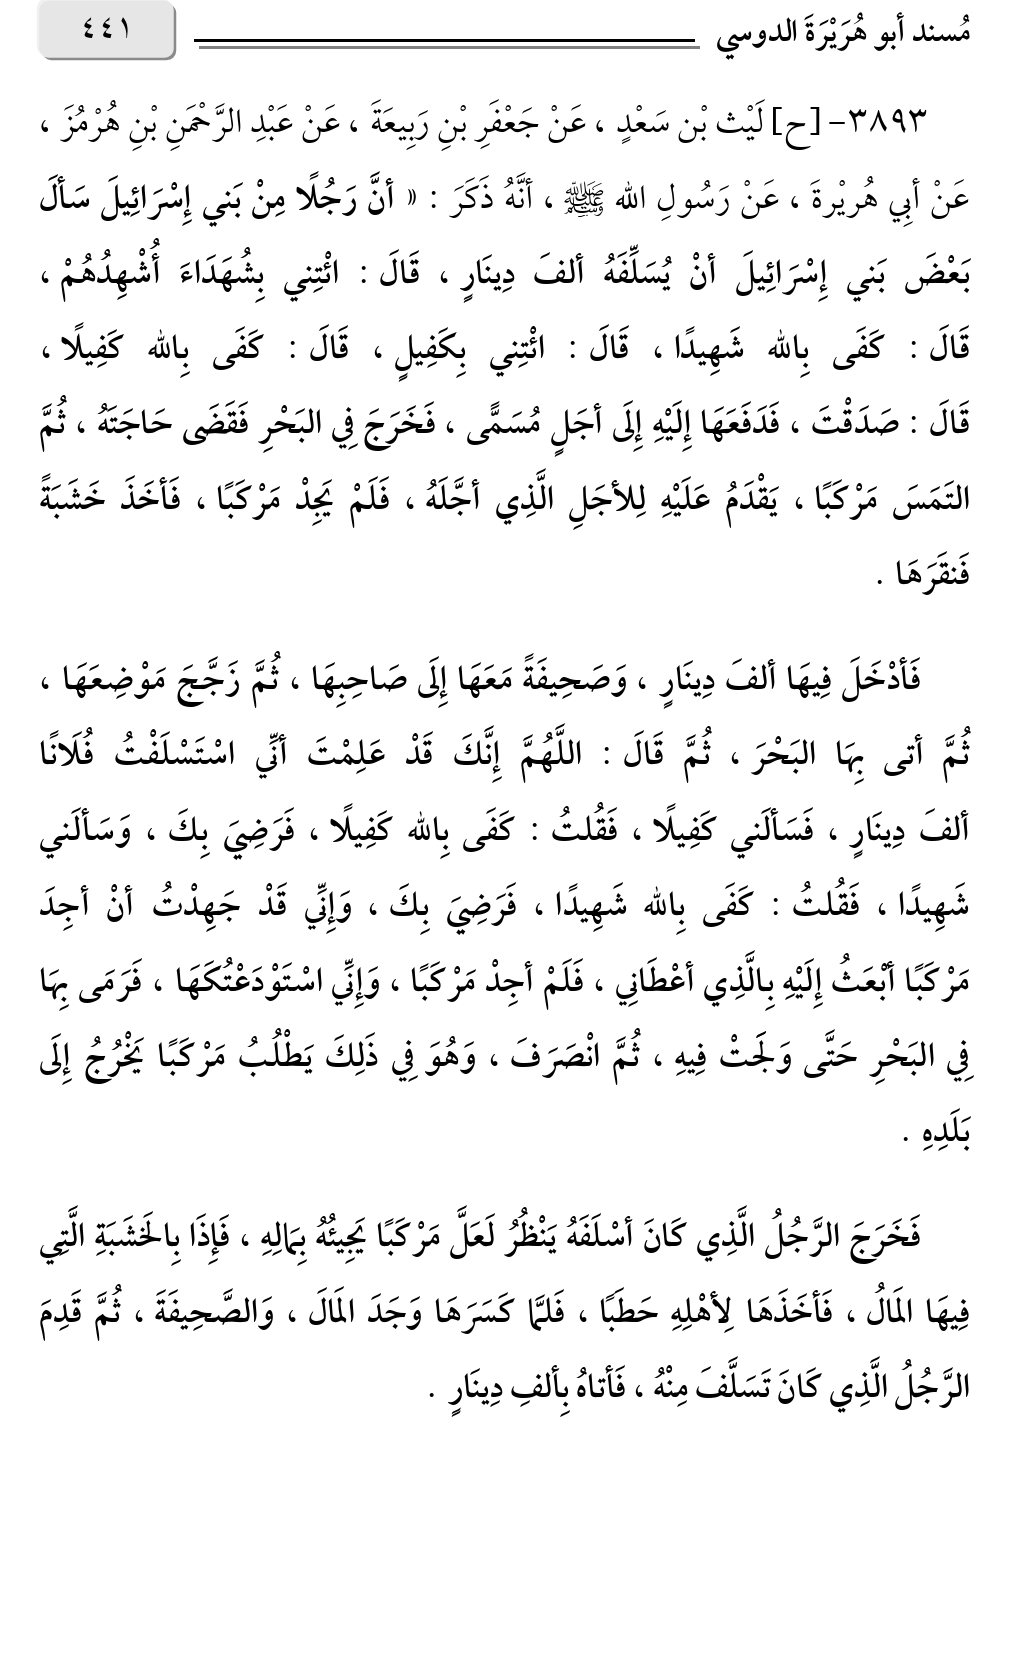 مُسند أبو هُرَيْرَةَ الدوسي ٤٤١
٣٨٩٣- [ح] لَيْث بْن سَعْدٍ ، عَنْ جَعْفَرِ بْنِ رَبِيعَةَ ، عَنْ عَبْدِ الرَّحْمَنِ بْنِ هُرْمُزَ ،
عَنْ أبِي هُريْرةَ ، عَنْ رَسُولِ الله ﷺ ، أنَّهُ ذَكَرَ : « أنَّ رَجُلًا مِنْ بَني إِسْرَائِيلَ سَألَ
بَعْضَ بَني إِسْرَائِيلَ أنْ يُسَلِّفَهُ ألفَ دِينَارٍ ، قَالَ : ائْتِني بِشُهَدَاءَ أُشْهِدُهُمْ ،
قَالَ : كَفَى بِالله شَهِيدًا ، قَالَ : ائْتِني بِكَفِيلٍ ، قَالَ : كَفَى بِالله كَفِيلًا ،
قَالَ : صَدَقْتَ ، فَدَفَعَهَا إِلَيْهِ إِلَى أجَلٍ مُسَمًّى ، فَخَرَجَ فِي البَحْرِ فَقَضَى حَاجَتَهُ ، ثُمَّ
التَمَسَ مَرْكَبًا ، يَقْدَمُ عَلَيْهِ لِلأجَلِ الَّذِي أجَّلَهُ ، فَلَمْ يَجِدْ مَرْكَبًا ، فَأخَذَ خَشَبَةً
فَنقَرَهَا .
فَأدْخَلَ فِيهَا ألفَ دِينَارٍ ، وَصَحِيفَةً مَعَهَا إِلَى صَاحِبِهَا ، ثُمَّ زَجَّجَ مَوْضِعَهَا ،
ثُمَّ أتى بِهَا البَحْرَ ، ثُمَّ قَالَ : اللَّهُمَّ إِنَّكَ قَدْ عَلِمْتَ أنِّي اسْتَسْلَفْتُ فُلَانًا
ألفَ دِينَارٍ ، فَسَألَني كَفِيلًا ، فَقُلتُ : كَفَى بِالله كَفِيلًا ، فَرَضِيَ بِكَ ، وَسَألَني
شَهِيدًا ، فَقُلتُ : كَفَى بِالله شَهِيدًا ، فَرَضِيَ بِكَ ، وَإِنِّي قَدْ جَهِدْتُ أنْ أجِدَ
مَرْكَبًا أبْعَثُ إِلَيْهِ بِالَّذِي أعْطَانِي ، فَلَمْ أجِدْ مَرْكَبًا ، وَإِنِّي اسْتَوْدَعْتُكَهَا ، فَرَمَى بِهَا
فِي البَحْرِ حَتَّى وَلَجَتْ فِيهِ ، ثُمَّ انْصَرَفَ ، وَهُوَ فِي ذَلِكَ يَطْلُبُ مَرْكَبًا يَخْرُجُ إِلَى
بَلَدِهِ .
فَخَرَجَ الرَّجُلُ الَّذِي كَانَ أسْلَفَهُ يَنْظُرُ لَعَلَّ مَرْكَبًا يَجِيئُهُ بِمَالِهِ ، فَإِذَا بِالخَشَبَةِ الَّتِي
فِيهَا المَالُ ، فَأخَذَهَا لِأهْلِهِ حَطَبًا ، فَلمَّا كَسَرَهَا وَجَدَ المَالَ ، وَالصَّحِيفَةَ ، ثُمَّ قَدِمَ
الرَّجُلُ الَّذِي كَانَ تَسَلَّفَ مِنْهُ ، فَأتاهُ بِألفِ دِينَارٍ .